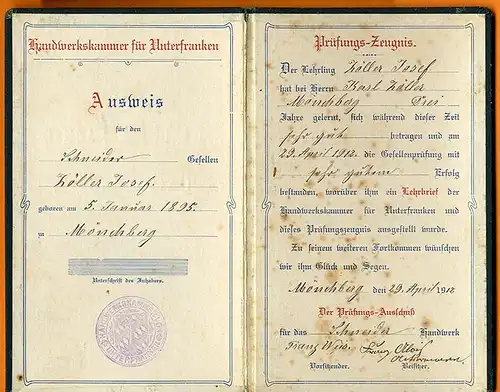 Handwerkskammer für Unterfranken
Ausweis
für den
Schneider Gesellen
Zöller Josef
geboren am 5. Januar 1895.
zu Mönchberg
Unterschrift des Inhabers.
Prüfungs-Zeugnis.
Der Lehrling Zöller Josef
hat bei Herrn Karl Zöller
Mönchberg Drei
Jahre gelernt, sich während dieser Zeit
sehr gut betragen und am
29. April 1912. die Gesellenprüfung mit
sehr gutem Erfolg
bestanden, worüber ihm ein Lehrbrief der
Handwerkskammer für Unterfranken und
dieses Prüfungszeugnis ausgestellt wurde.
Zu seinem weiteren Fortkommen wünschen
wir ihm Glück und Segen.
Mönchberg den 29. April 1912
Der Prüfungs-Ausschuß
für das Schneider Handwerk
Franz
Vorsitzender. Beisitzer.